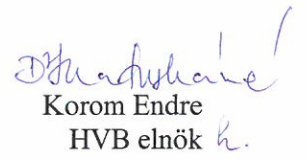 Korom Endre
HVB elnök h.